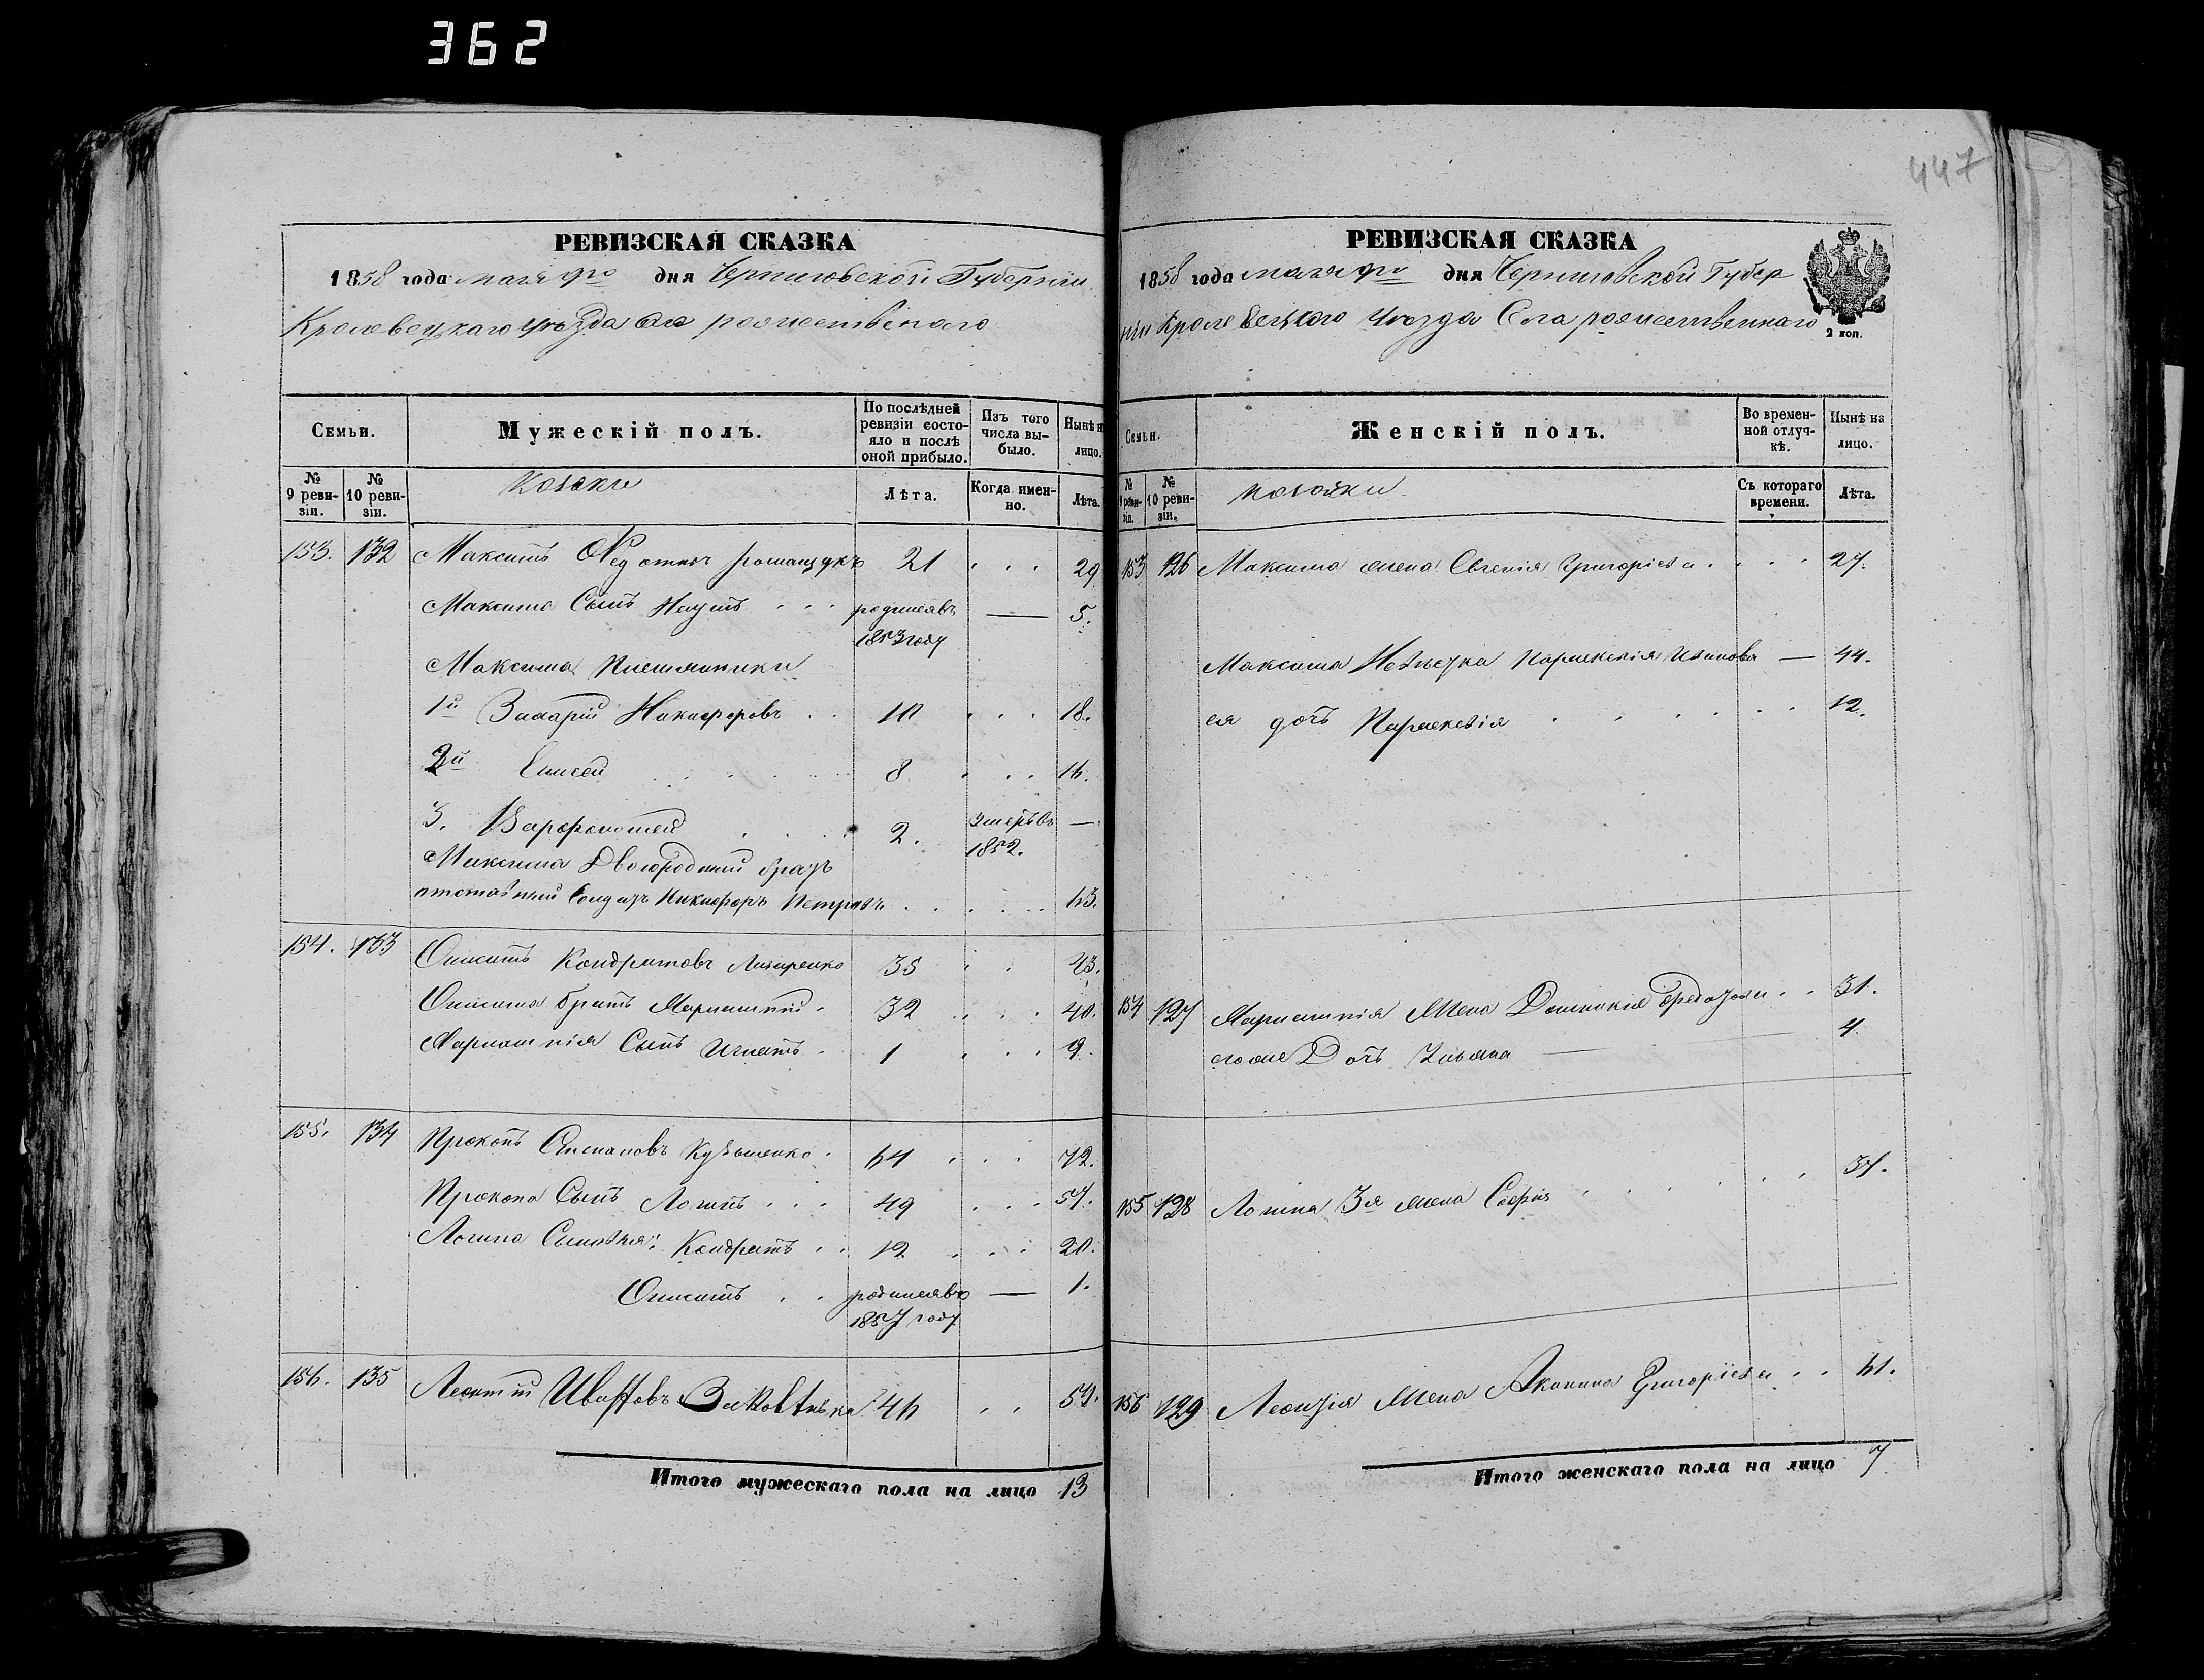 362
447
РЕВИЗСКАЯ СКАЗКА
1858 года мая 9го дня Черниговской Губерніи
Кролевецкаго уѣзда Села рожественаго
Семьи.
Мужескій полъ.
По послѣдней ревизіи состояло и послѣ оной прибыло.
Изъ того числа выбыло.
Нынѣ на лицо.
№ 9 ревизіи.
№ 10 ревизіи.
Козаки
Лѣта.
Когда именно.
Лѣта.
153. 132 Максимъ Ѳедотовъ ромащукъ 21 . . . 29
Максима Сынъ Наумъ . . . родилсявъ 1853 году — 5.
Максима Племянники
1й Захарій Никифоровъ . . 10 . . . 18.
2й Елисей 8 . . . 16.
3. Варфоломей 2. умеръ въ 1852. —
Максима Двоюродный братъ
отставный Солдатъ Никифоръ Петровъ . . . . 63.
154. 133 Онисимъ Кондратовъ Лазаренко 35 . . 43.
Онисима братъ Мариамній . 32 . . . 40.
Мариамнія Сынъ Игнатъ . 1 . . . 9.
155. 134 Прокопъ Степановъ Кузьменко . 64 . . . 72.
Прокопа Сынъ Логинъ . . . 49 . . . 57.
Логина Сыновья: Кондратъ . . 12 . . . 20.
Онисимъ . . родилсявъ 1857 году — 1.
156. 135 Леонтій Ивановъ 46 . . 54.
Итого мужескаго пола на лицо 13
РЕВИЗСКАЯ СКАЗКА
1858 года мая 9го дня Черниговской Губер
ніи Кролевецкого уѣзда Села рожественнаго
2 коп.
Семьи.
Женскій полъ.
Во временной отлучкѣ.
Нынѣ на лицо.
№ 9 ревизіи.
№ 10 ревизіи.
козачки
Съ котораго времени.
Лѣта.
153 126 Максима жена Евгенія Григоріева . . . . 27.
Максима Невѣстка Параскевія Иванова — 44.
ея дочь Параскевія . . . . . . 12.
154 127 Мариамнія Жена Домникія . . 31.
егоже Дочь Ульяна — 4.
155 128 Логина 3я жена Софія . . . . . . 37.
156 129 Леонтія Жена Акилина Григоріева . . 61.
Итого женскаго пола на лицо 7